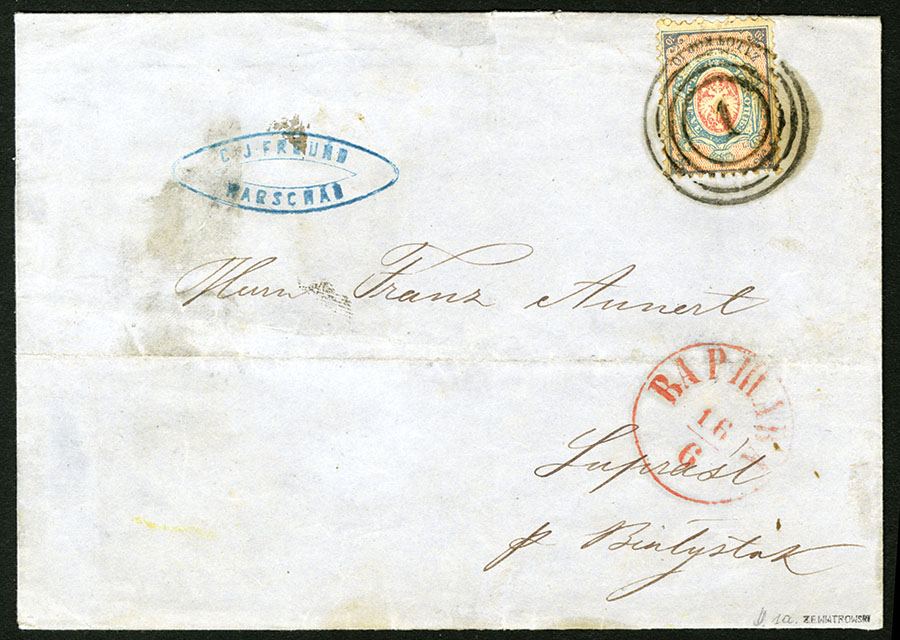 C. J FREUND
WARSCHAU
ZA ŁÓT
1
Herrn Franz Annert
ВАРШАВА
16
6
Suprasl
p Białystok
1a. Z.E.WIATROWSKI